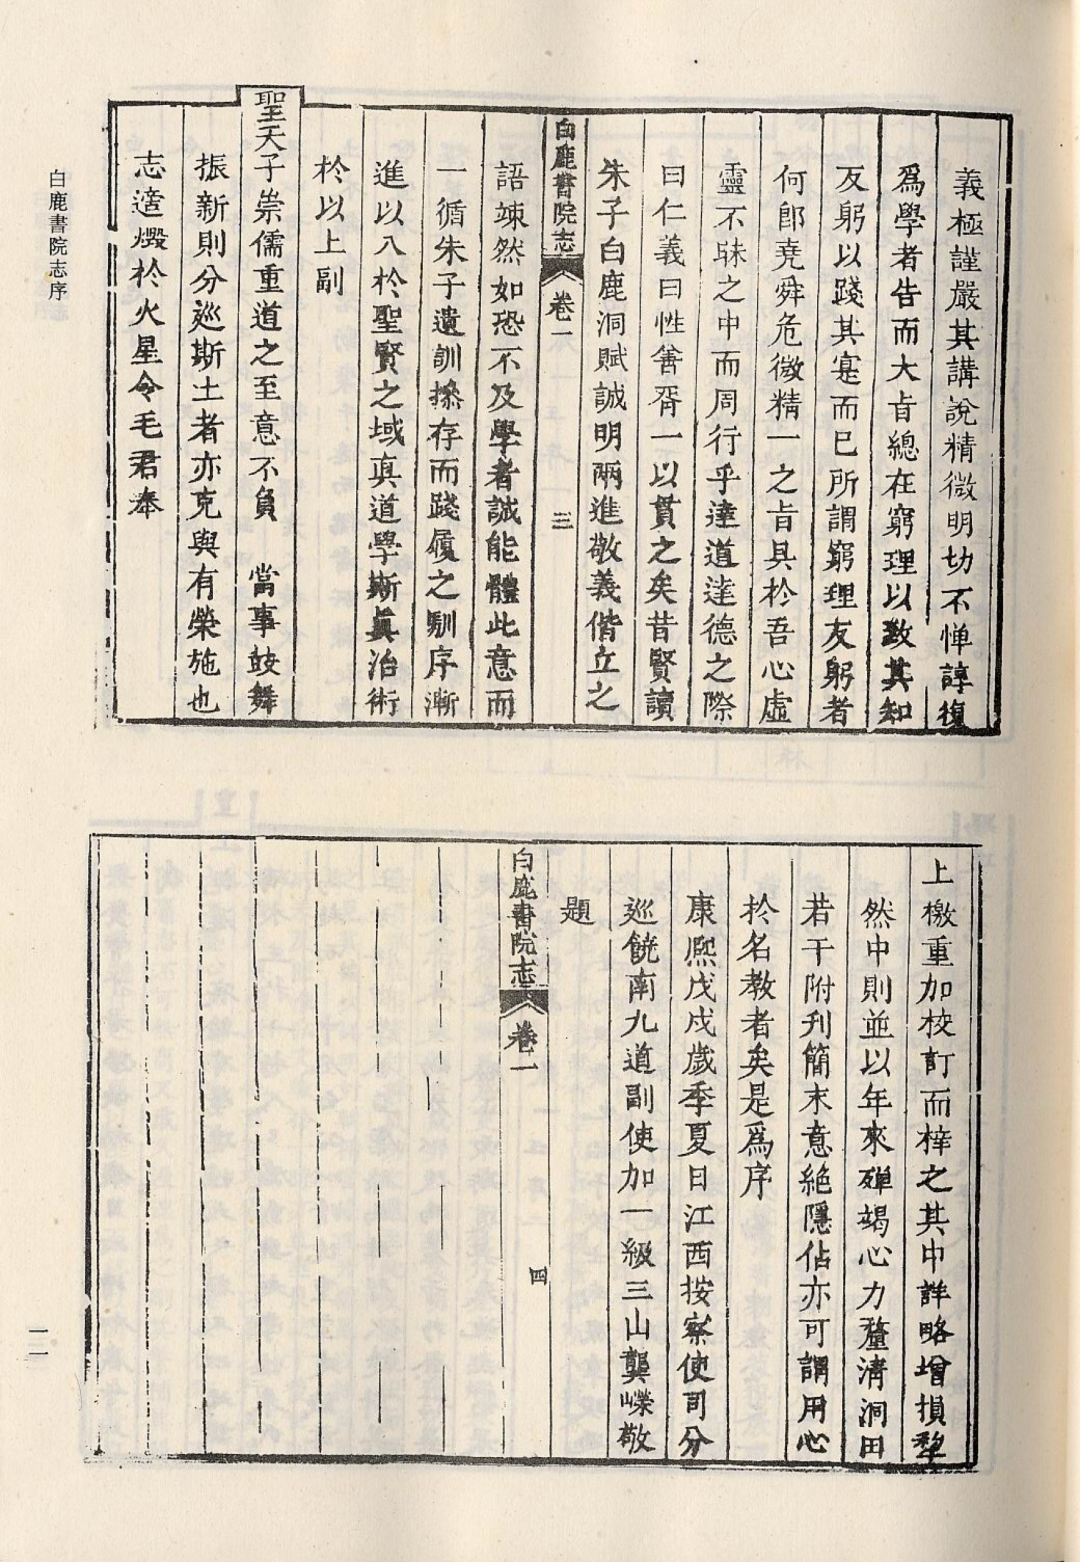 白鹿書院志序
義極謹嚴其講說精微明切不惮諄復
爲學者告而大旨總在窮理以致其知
反躬以踐其寔而已所謂窮理反躬者
何郎堯舜危微精一之旨具扵吾心虛
靈不昧之中而周行乎達道達德之際
曰仁義曰性善胥一以貫之矣昔賢讀
朱子白鹿洞賦誠明兩進敬義偕立之
白鹿書院志 卷一 三
語竦然如恐不及學者誠能體此意而
一循朱子遺訓操存而踐履之馴序漸
進以入扵聖賢之域眞道學斯眞治術
扵以上副
聖天子崇儒重道之至意不負 當事鼓舞
振新則分巡斯土者亦克與有榮施也
志適燬扵火星令毛君奉
上檄重加校訂而梓之其中詳略增損犂
然中則並以年來殫竭心力釐清洞田
若干附刊簡末意絶隱佔亦可謂用心
扵名教者矣是爲序
康熙戊戌歲季夏日江西按察使司分
巡饒南九道副使加一級三山龔嶸敬
題
白鹿書院志 卷一 四
一一